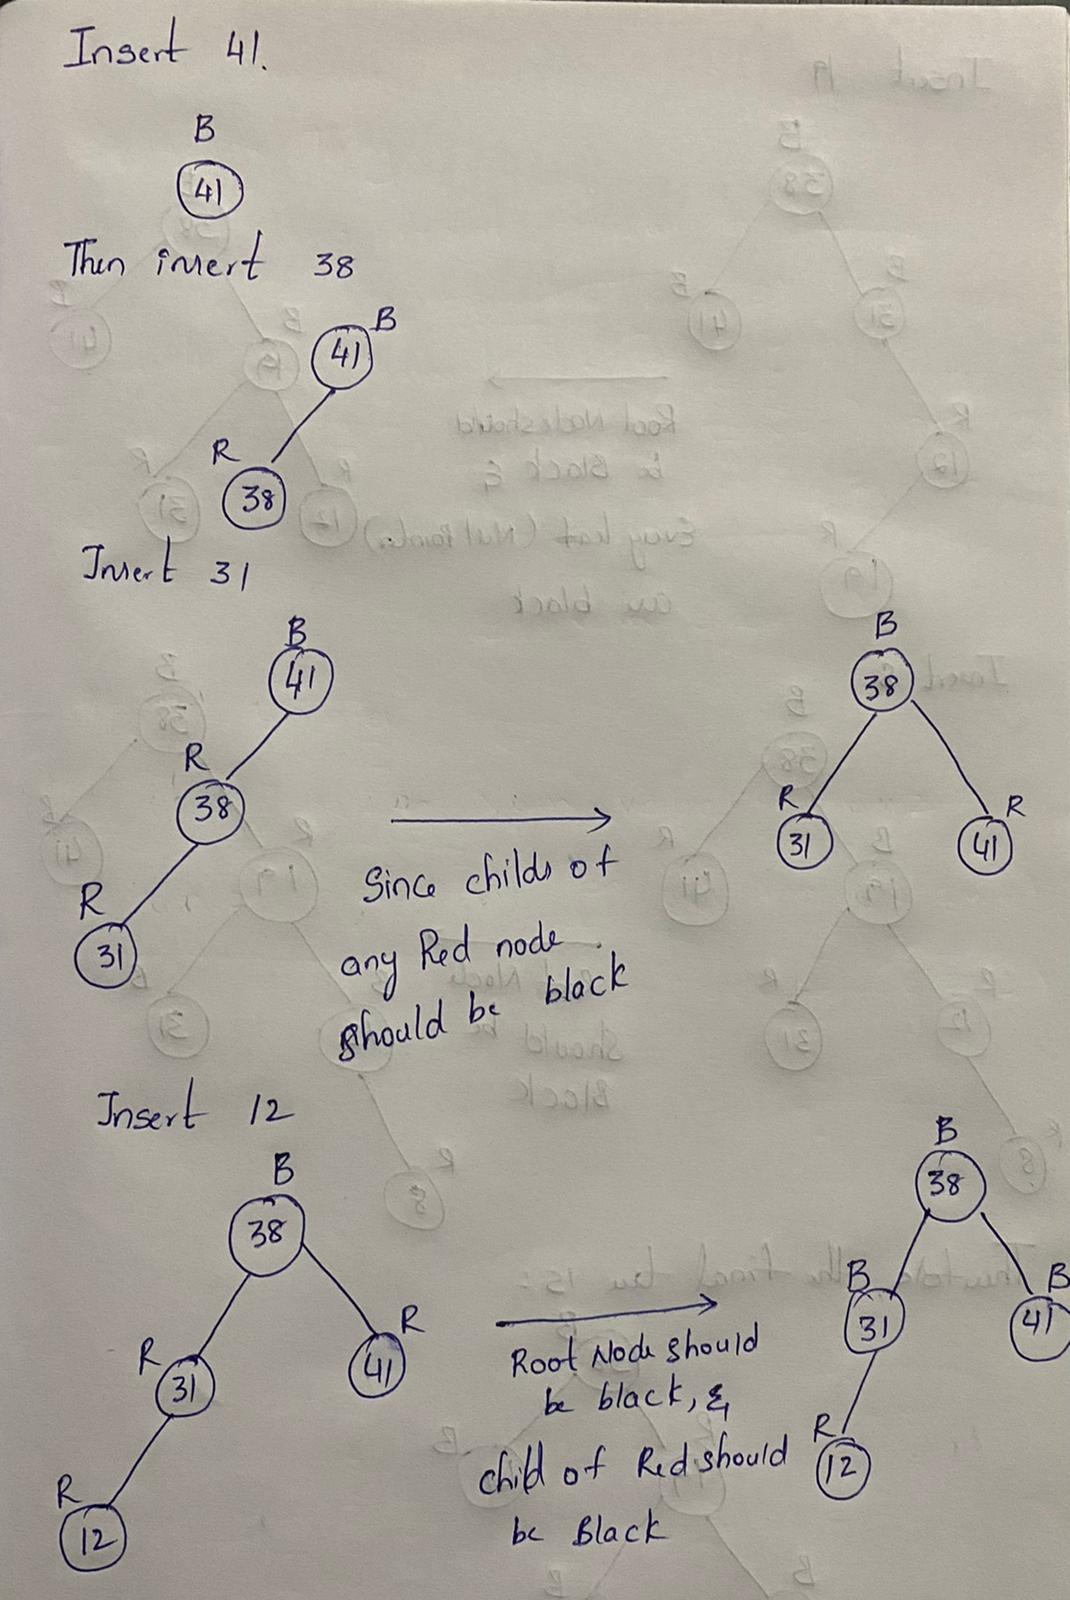 Insert 41.
B
41
Then insert 38
B
41
R
38
Insert 31
B
41
R
38
R
31
Since childs of
any Red node
should be black
B
38
R
31
R
41
Insert 12
B
38
R
31
R
41
R
12
Root Node should
be black, &
child of Red should
be Black
B
38
B
31
B
41
R
12